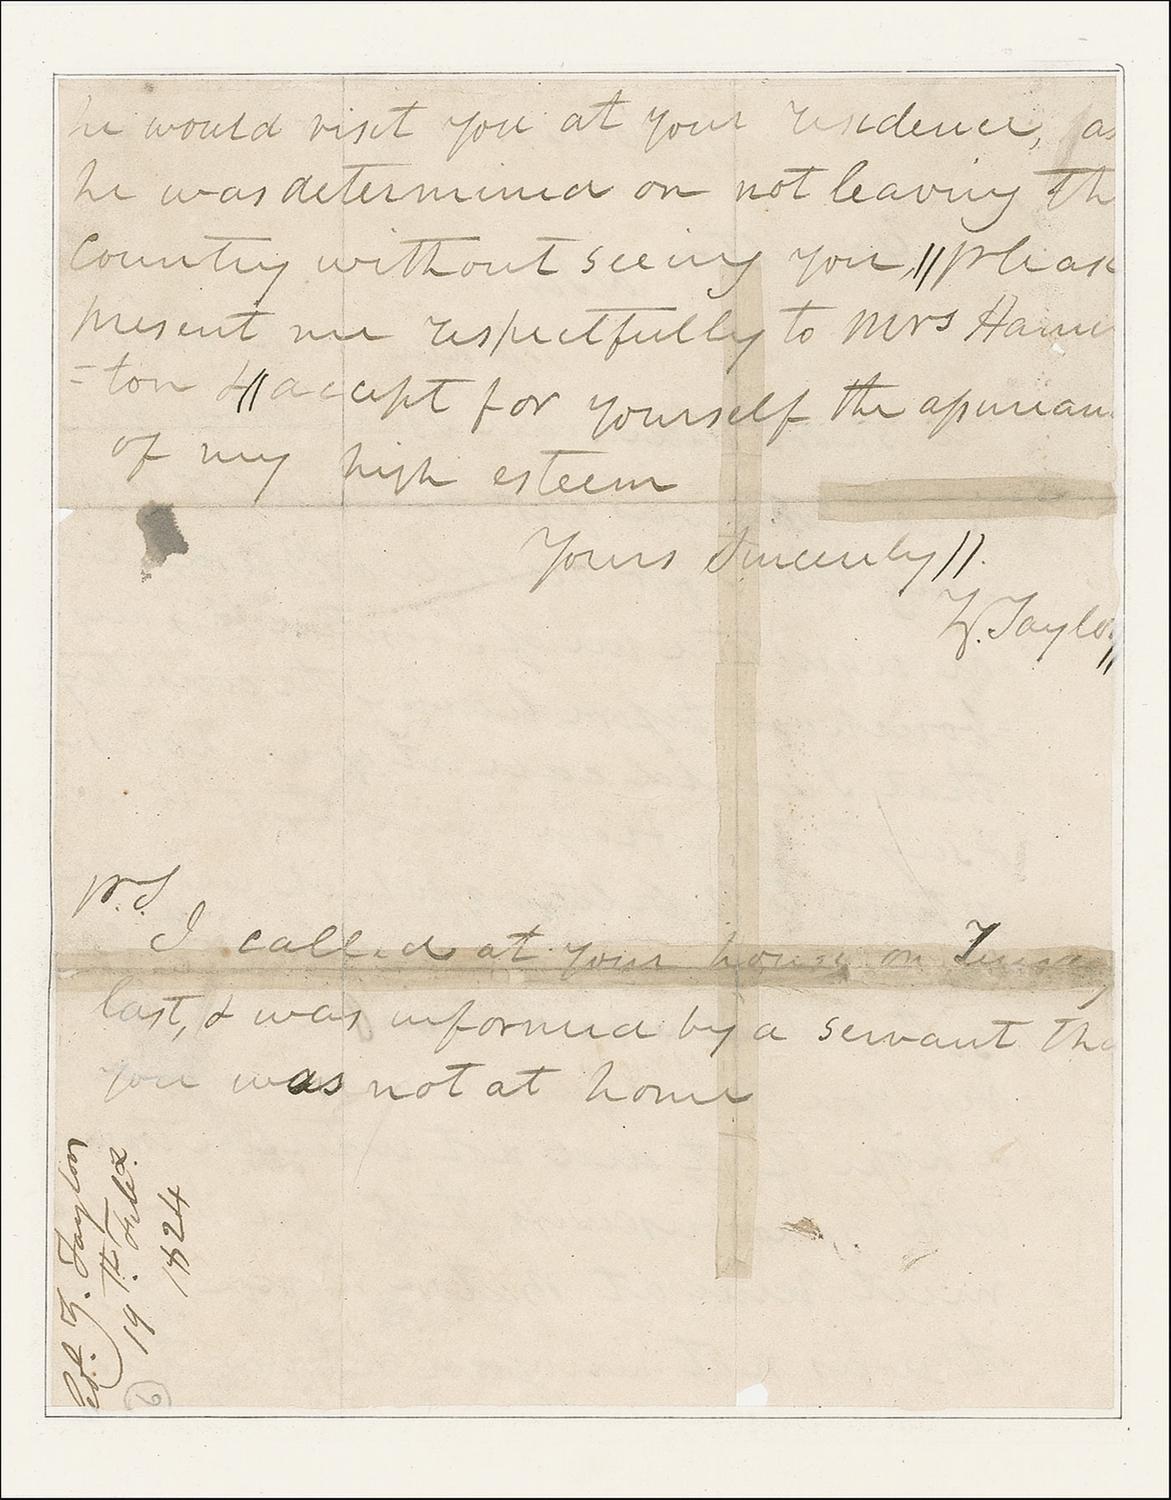 he would visit you at your residence, as
he was determined on not leaving th
Country without seeing you, // pleas
present me respectfully to Mrs Hami
=ton & // accept for yourself the
of my high esteem
Yours Sincerely //.
Z. Taylor //
P.S.
I called at your house on
last, & was informed by a servant tha
you was not at home
Z. Taylor
19th Feb.
1824